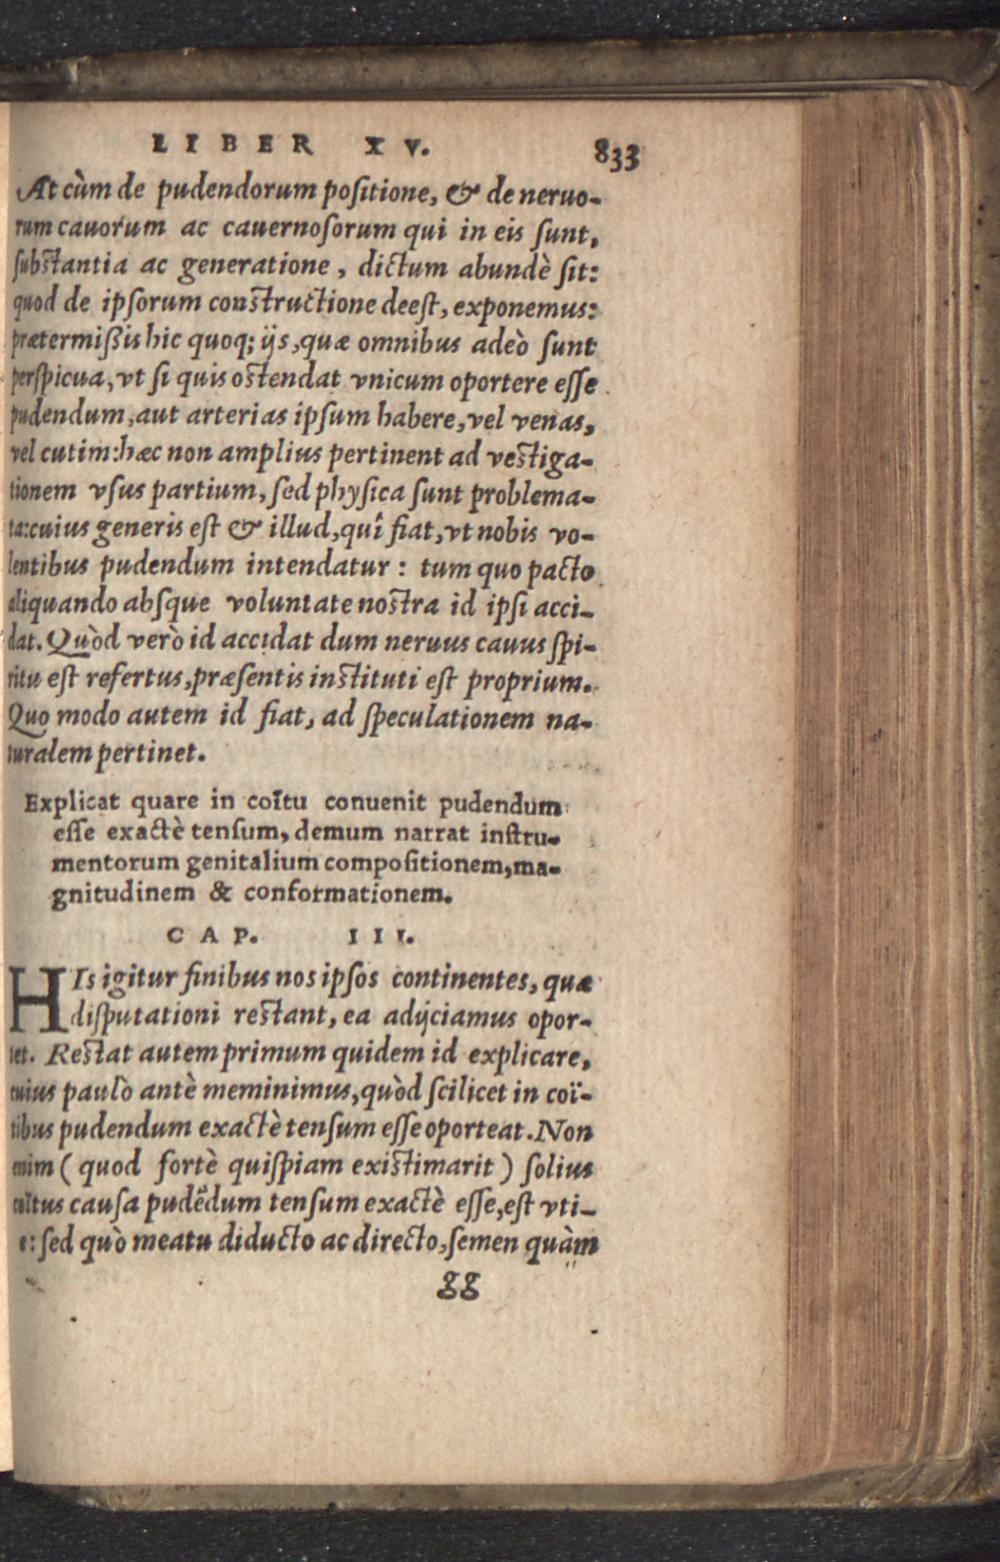 LIBER XV. 833
At cùm de pudendorum positione, & de neruo-
rum cauorum ac cauernosorum qui in eis sunt,
substantia ac generatione, dictum abundè sit:
quod de ipsorum constructione deest, exponemus:
prætermißis hic quoq; ijs, quæ omnibus adeò sunt
perspicua, vt si quis ostendat vnicum oportere esse
pudendum, aut arterias ipsum habere, vel venas,
vel cutim: hæc non amplius pertinent ad vestiga-
tionem vsus partium, sed physica sunt problema-
ta: cuius generis est & illud, quî fiat, vt nobis vo-
lentibus pudendum intendatur: tum quo pacto
aliquando absque voluntate nostra id ipsi acci-
dat. Quòd verò id accidat dum neruus cauus spi-
ritu est refertus, præsentis instituti est proprium.
Quo modo autem id fiat, ad speculationem na-
turalem pertinet.
Explicat quare in coïtu conuenit pudendum
esse exactè tensum, demum narrat instru-
mentorum genitalium compositionem, ma-
gnitudinem & conformationem.
CAP. III.
HIs igitur finibus nos ipsos continentes, quæ
disputationi restant, ea adijciamus opor-
tet. Restat autem primum quidem id explicare,
cuius paulò antè meminimus, quòd scilicet in coï-
tibus pudendum exactè tensum esse oporteat. Non
enim (quod fortè quispiam existimarit) solius
coïtus causa pudẽdum tensum exactè esse, est vti-
e: sed quò meatu diducto ac directo, semen quàm
gg